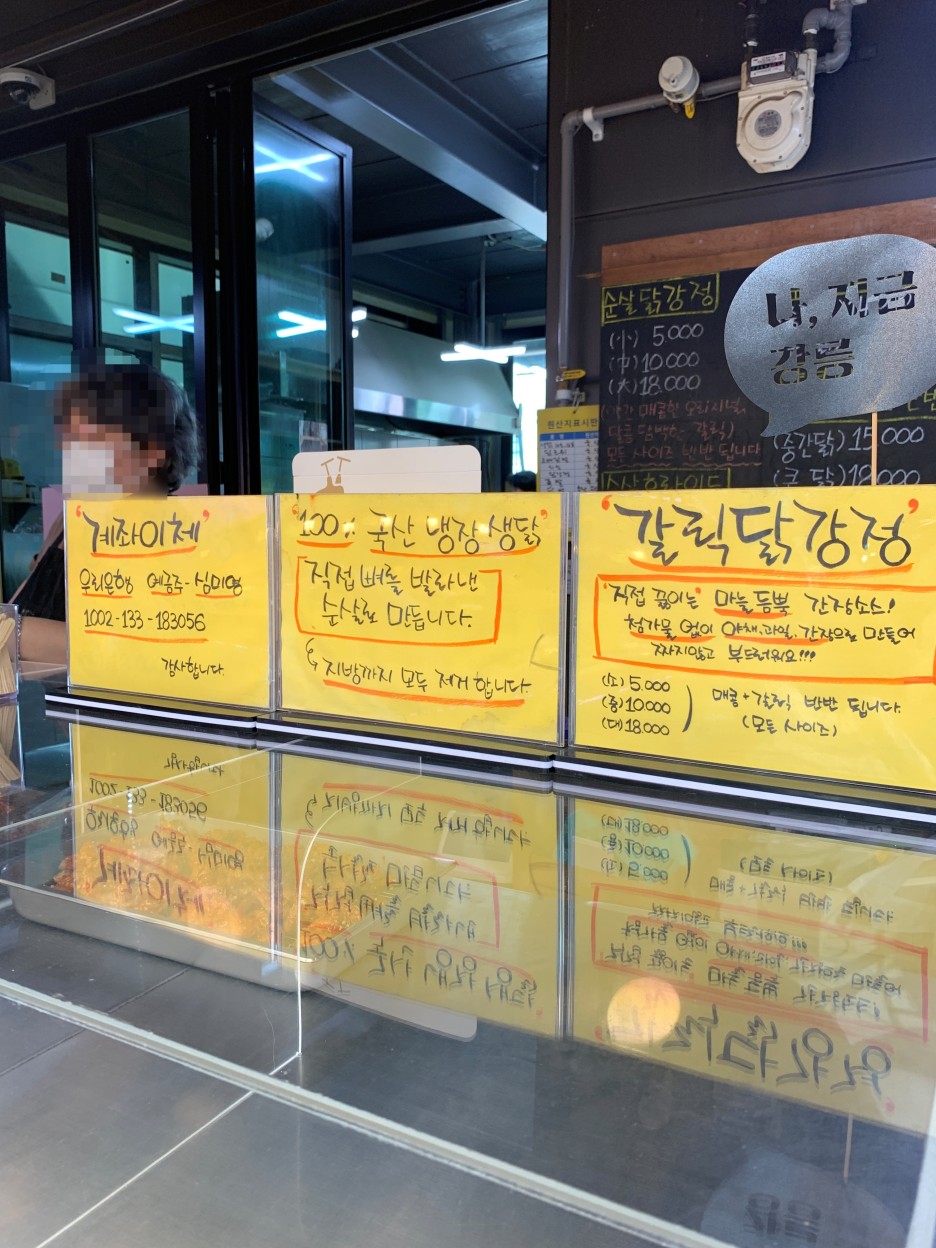 순살닭강정
(小) 5.000
(中) 10.000
(大) 18.000
모든 사이즈 반반 됩니다
나, 지금
강릉
(중간닭) 15.000
(큰 닭) 18.000
원산지표시판
'계좌이체'
우리은행 예금주-심미영
1002-133-183056
감사합니다.
'100% 국산 냉장 생닭'
직접 뼈를 발라낸
순살로 만듭니다.
지방까지 모두 제거 합니다.
'갈릭닭강정'
'직접 끓이는' 마늘듬뿍 간장소스!
첨가물 없이 야채.과일.간장으로 만들어
짜지않고 부드러워요!!!
(소) 5.000
(중) 10.000
(대) 18.000
매콤+갈릭 반반 됩니다.
(모든 사이즈)